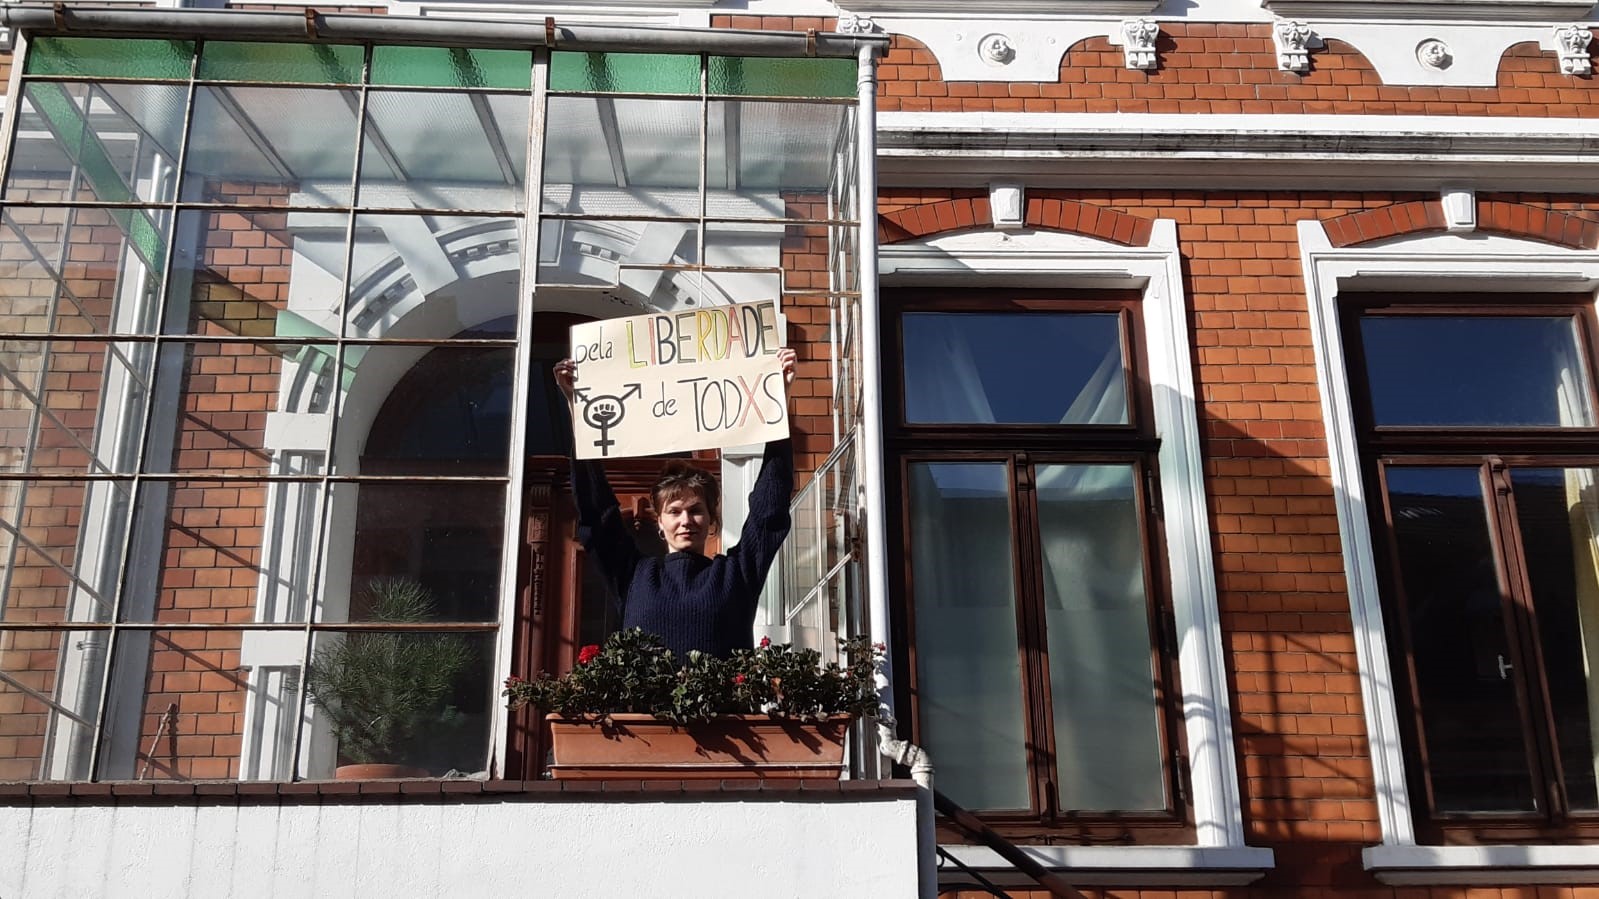 pela LIBERDADE
de TODXS